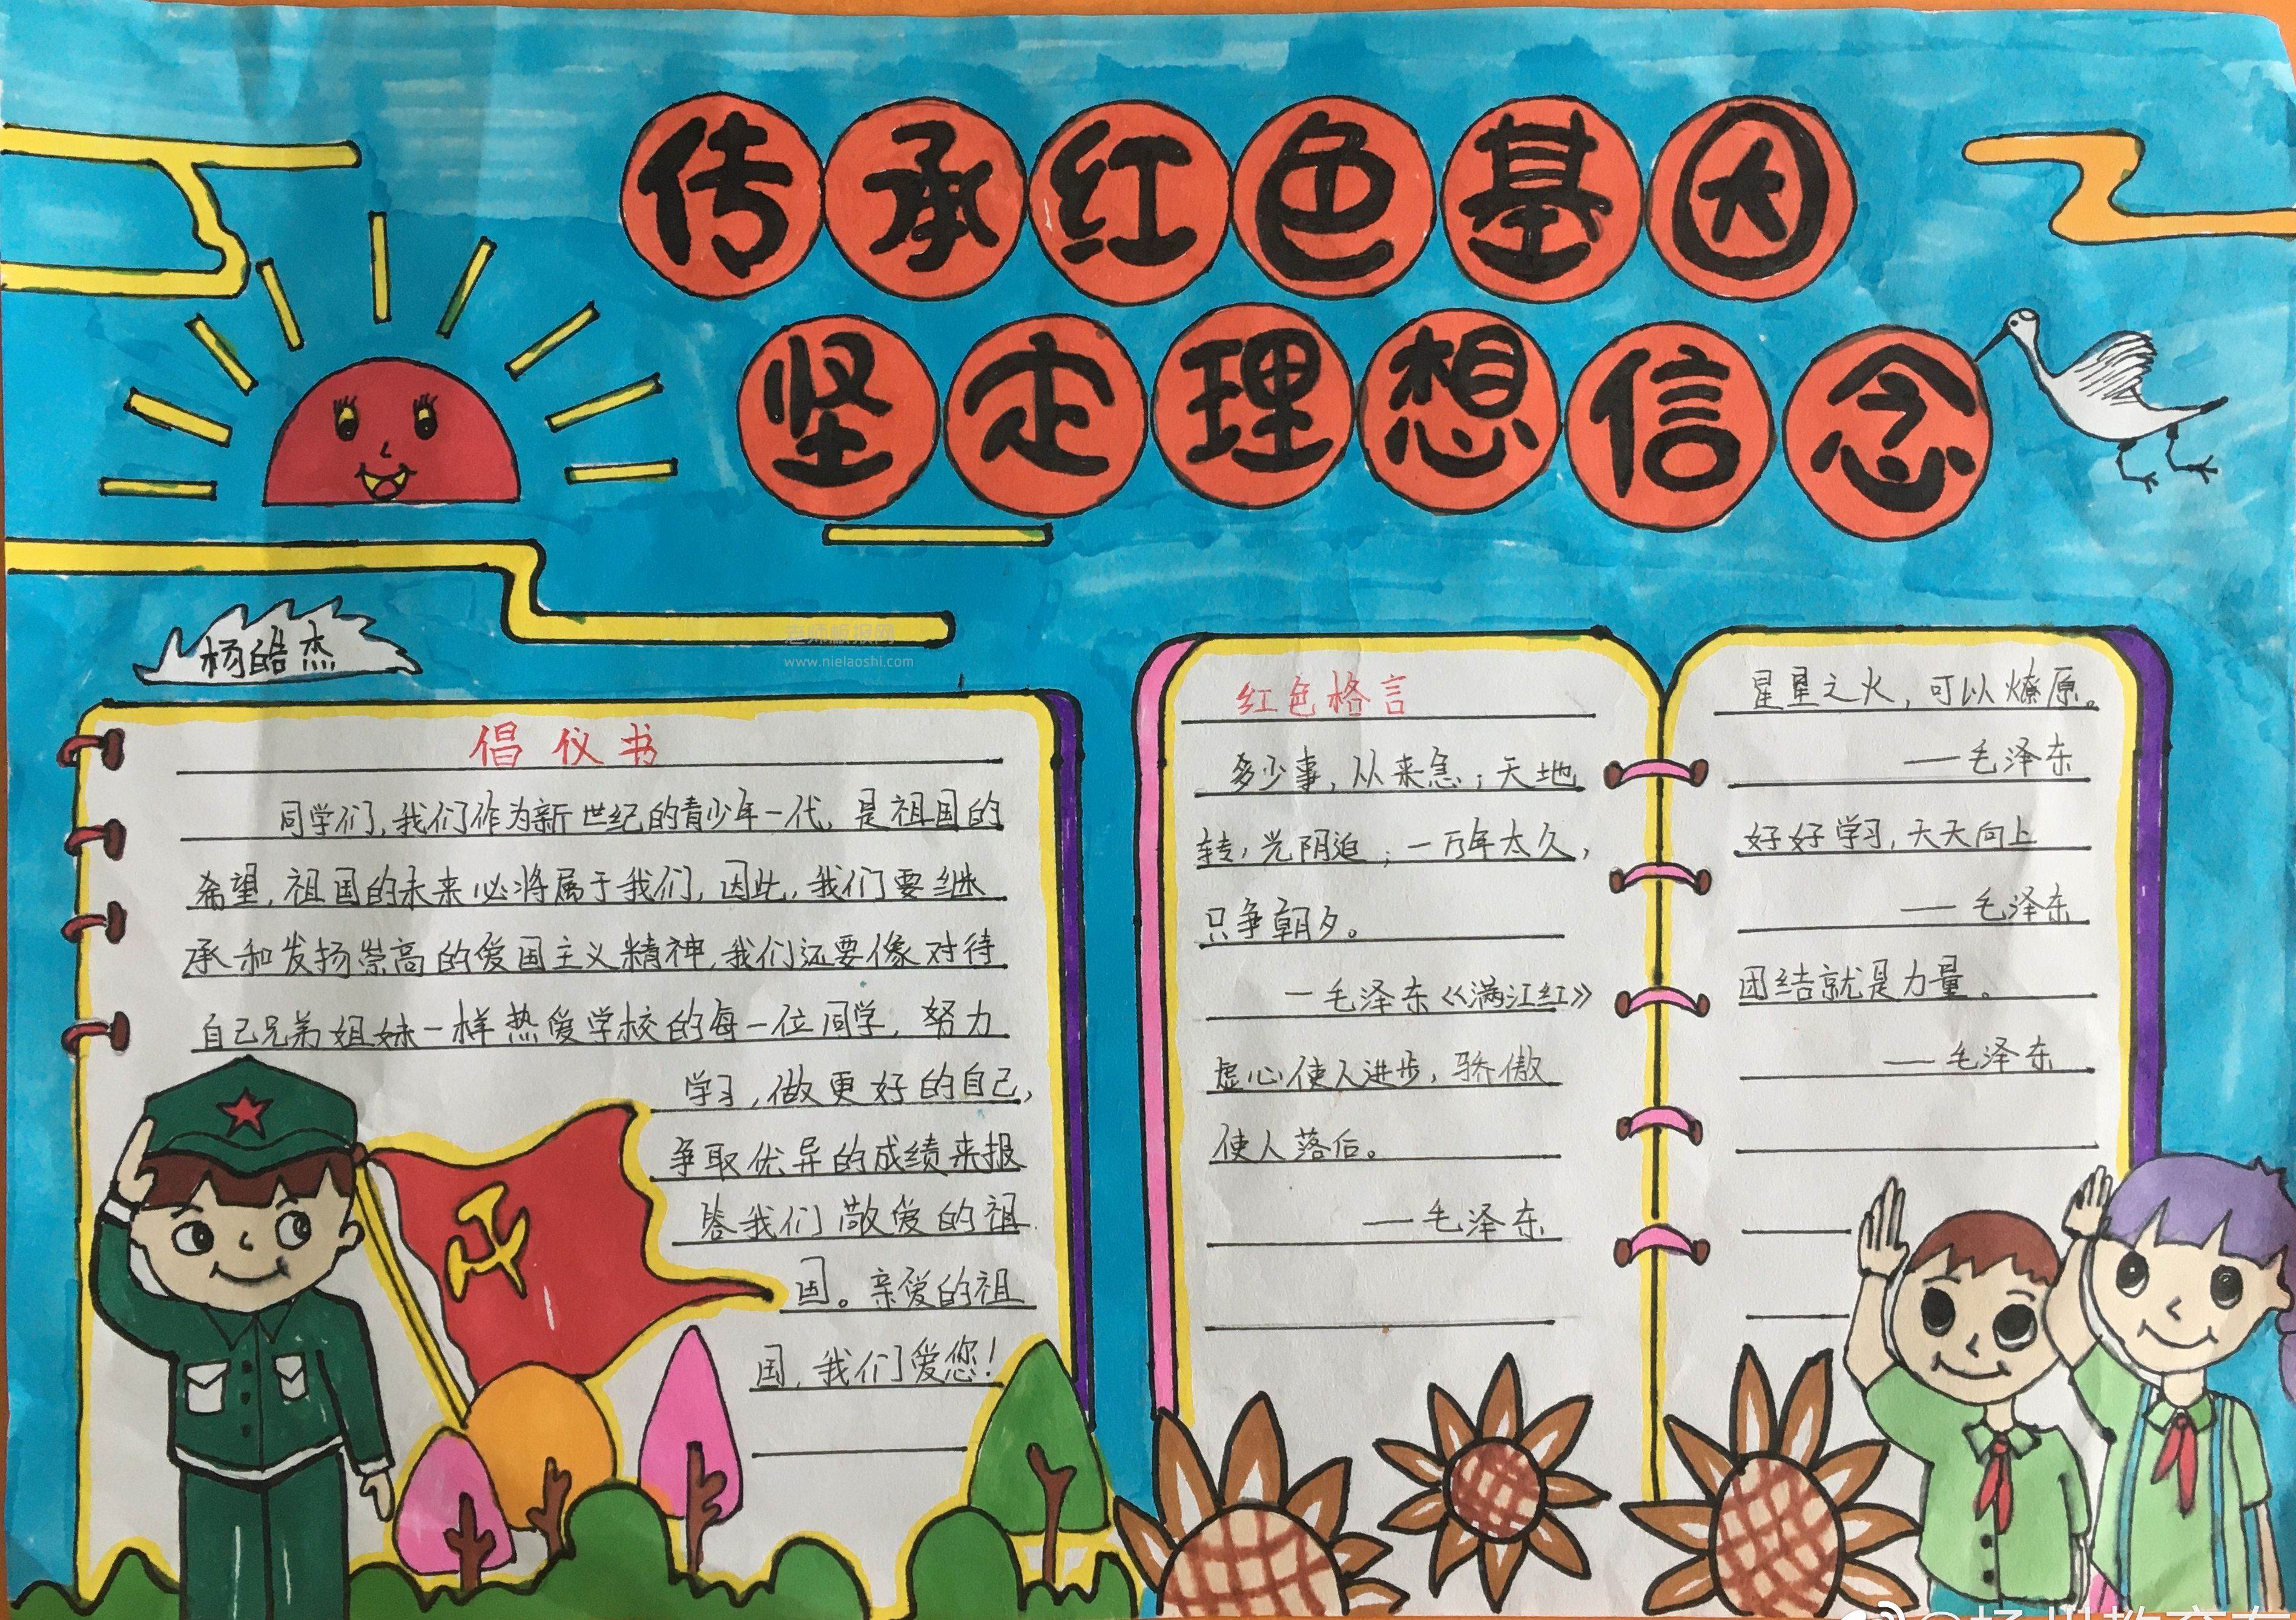 传承红色基因
坚定理想信念
杨皓杰
老师板报网
www.nielaoshi.com
倡仪书
同学们,我们作为新世纪的青少年一代,是祖国的
希望,祖国的未来必将属于我们,因此,我们要继
承和发扬崇高的爱国主义精神,我们还要像对待
自己兄弟姐妹一样热爱学校的每一位同学,努力
学习,做更好的自己,
争取优异的成绩来报
答我们敬爱的祖
国。亲爱的祖
国,我们爱您!
红色格言
多少事,从来急;天地
转,光阴迫;一万年太久,
只争朝夕。
—毛泽东《满江红》
虚心使人进步,骄傲
使人落后。
——毛泽东
星星之火,可以燎原。
——毛泽东
好好学习,天天向上
——毛泽东
团结就是力量。
——毛泽东